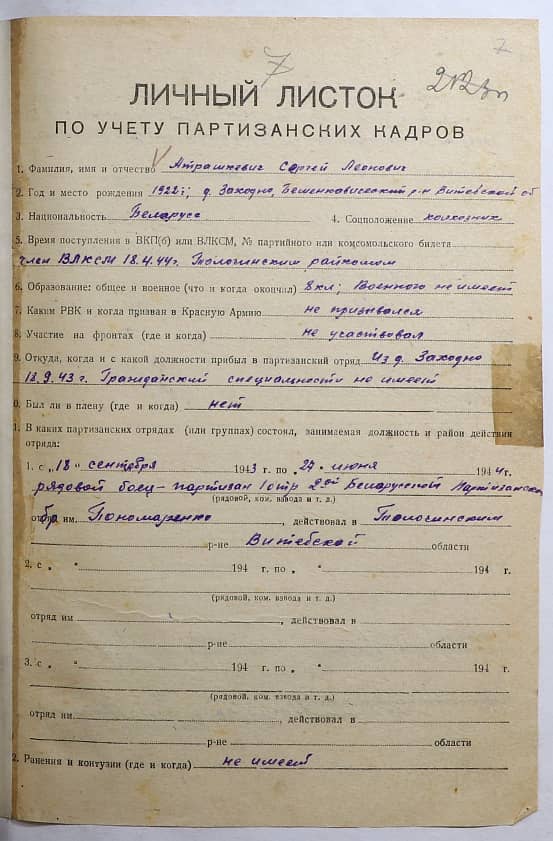 7
7
ЛИЧНЫЙ ЛИСТОК
ПО УЧЕТУ ПАРТИЗАНСКИХ КАДРОВ
1. Фамилия, имя и отчество Атрашкевич Сергей Леонович
2. Год и место рождения 1922 г; д. Заходно, Бешенковический р-н Витебской об
3. Национальность Беларусс 4. Соцположение колхозник
5. Время поступления в ВКП(б) или ВЛКСМ, № партийного или комсомольского билета
член ВЛКСМ 18.4.44г. Толочинским райкомом
6. Образование: общее и военное (что и когда окончил) 8 кл; Военного не имеет
7. Каким РВК и когда призван в Красную Армию не призывался
8. Участие на фронтах (где и когда) не участвовал
9. Откуда, когда и с какой должности прибыл в партизанский отряд Из д. Заходно
18.9.43 г. Гражданской специальности не имеет
0. Был ли в плену (где и когда) нет
1. В каких партизанских отрядах (или группах) состоял, занимаемая должность и район действия
отряда:
1. с „18" сентября 1943 г. по „27" июня 1944 г.
рядовой боец-партизан 1 отр 2ой Белорусской Партизанской
(рядовой, ком. взвода и т. д.)
отряд бр им. Пономаренко, действовал в Толочинским
р-не Витебской области
2. с „ " 194 г. по „ " 194 г.
(рядовой, ком. взвода и т. д.)
отряд им , действовал в
р-не области
3. с „ " 194 г. по „ " 194 г.
(рядовой, ком. взвода и т. д.)
отряд им. , действовал в
р-не области
2. Ранения и контузии (где и когда) не имеет